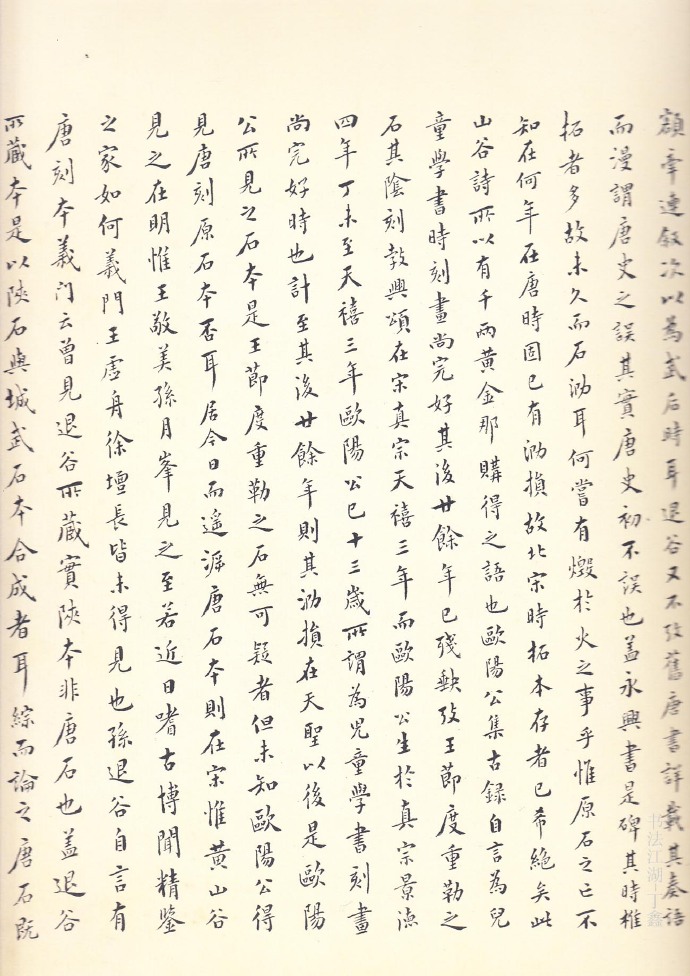 額牽連敘次以為武后時耳退谷又不攷舊唐書詳載其奏語
而漫謂唐史之誤其實唐史初不誤也盖永興書是碑其時椎
拓者多故未久而石泐耳何嘗有燬於火之事乎惟原石之亡不
知在何年在唐時固已有泐損故北宋時拓本存者已希絶矣此
山谷詩所以有千兩黃金那購得之語也歐陽公集古錄自言為兒
童學書時刻畫尚完好其後廿餘年已殘缺攷王節度重勒之
石其陰刻敕興頌在宋真宗天禧三年而歐陽公生於真宗景德
四年丁未至天禧三年歐陽公已十三歲所謂為兒童學書刻畫
尚完好時也計至其後廿餘年則其泐損在天聖以後是歐陽
公所見之石本是王節度重勒之石無可疑者但未知歐陽公得
見唐刻原石本否耳居今日而遥溯唐石本則在宋惟黃山谷
見之在明惟王敬美孫月峯見之至若近日嗜古博聞精鑒
之家如何義門王虛舟徐壇長皆未得見也孫退谷自言有
唐刻本義门云曾見退谷所藏實陝本非唐石也盖退谷
所藏本是以陝石與城武石本合成者耳綜而論之唐石既
书法江湖-丁鑫